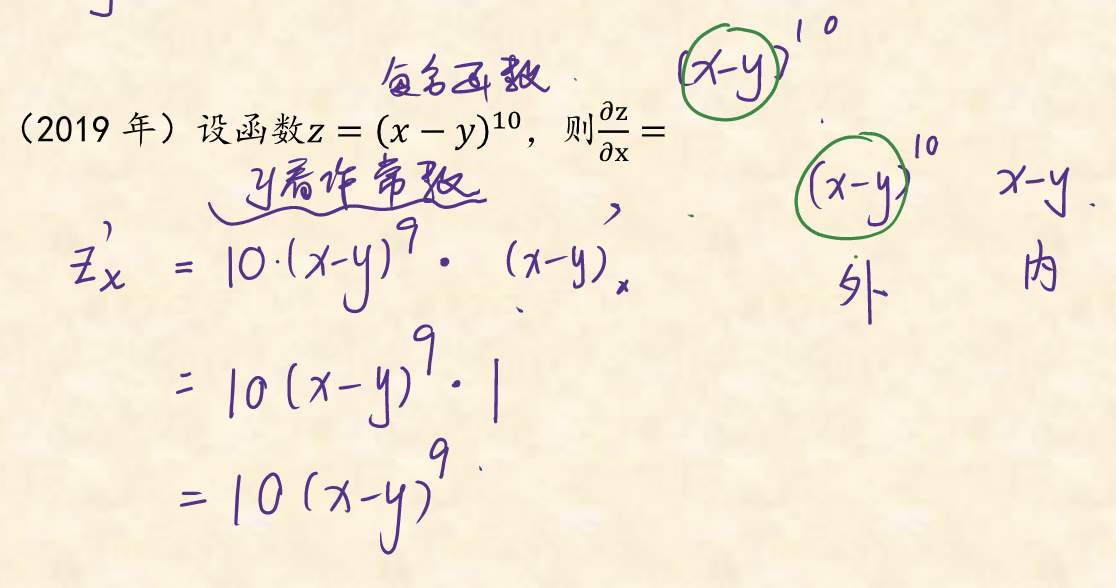 复合函数
(x-y)¹⁰
（2019 年）设函数z = (x − y)¹⁰，则∂z/∂x =
y看作常数
(x-y)¹⁰ x-y
外 内
z'ₓ = 10·(x-y)⁹ · (x-y)'ₓ
= 10(x-y)⁹ · 1
= 10(x-y)⁹